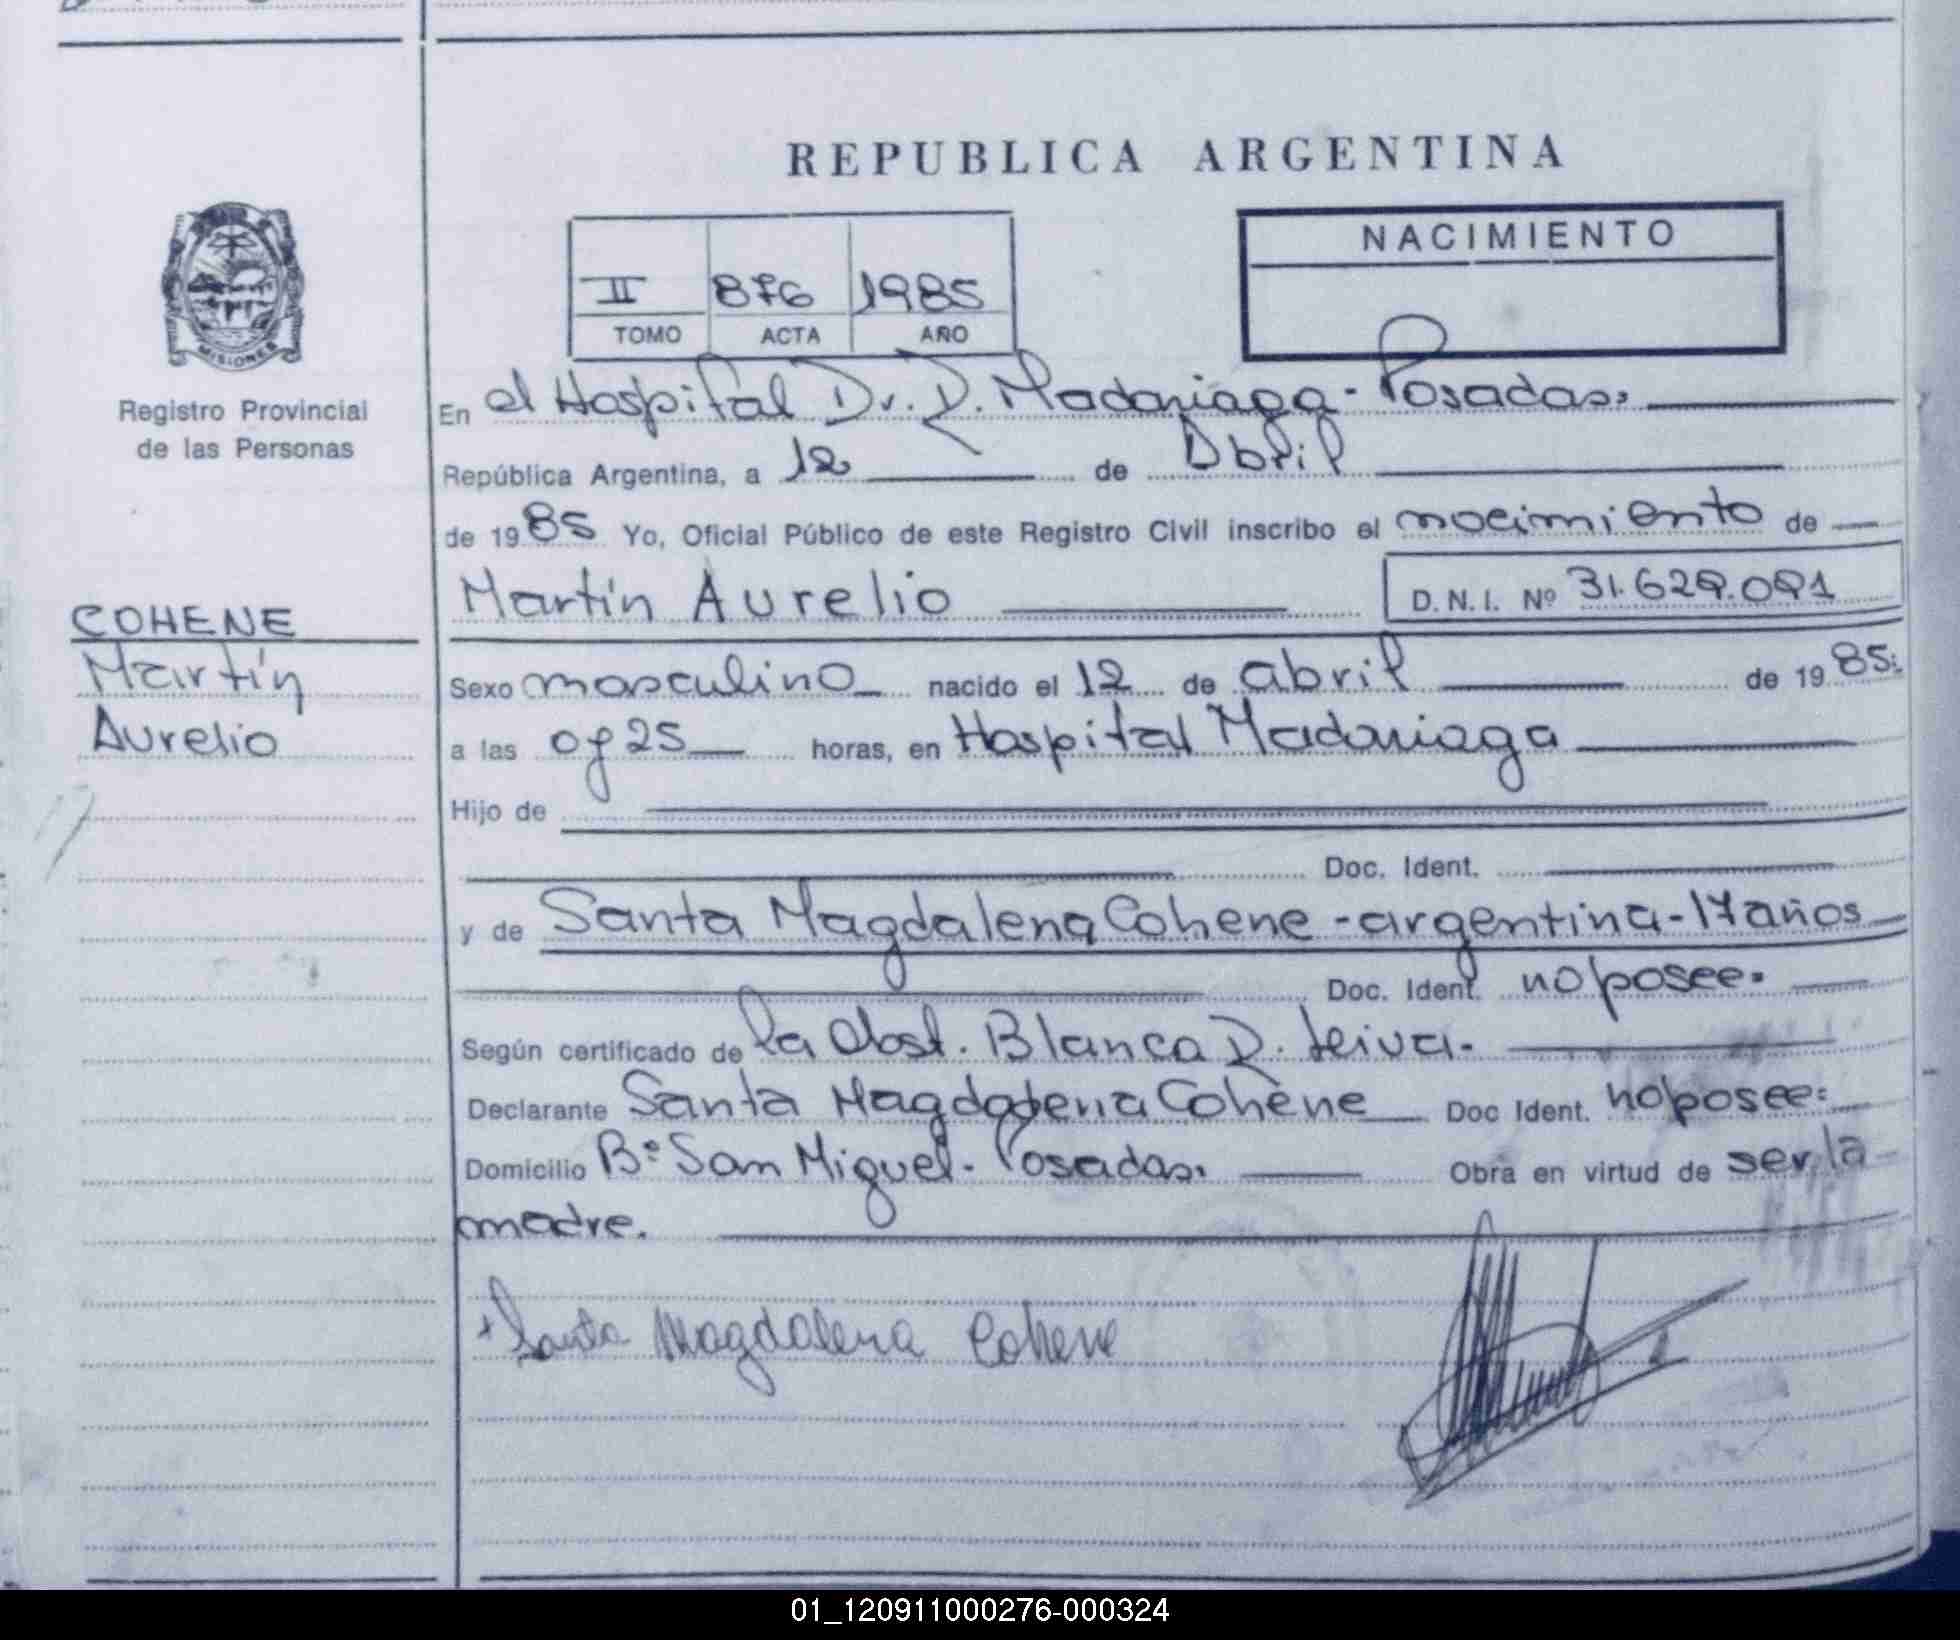 REPUBLICA ARGENTINA
MISIONES
Registro Provincial
de las Personas
NACIMIENTO
II 876 1985
TOMO ACTA AÑO
En el Hospital Dr. R. Madariaga - Posadas.
República Argentina, a 12 de Abril
de 1985 Yo, Oficial Público de este Registro Civil inscribo el nacimiento de
COHENE
Martín
Aurelio
Martín Aurelio D.N.I. Nº 31.629.091
Sexo masculino nacido el 12 de abril de 1985.
a las 07 25 horas, en Hospital Madariaga
Hijo de
Doc. Ident.
y de Santa Magdalena Cohene - argentina - 17 años
Doc. Ident. no posee.
Según certificado de la Obst. Blanca R. Leiva.
Declarante Santa Magdalena Cohene Doc Ident. no posee:
Domicilio Bº San Miguel - Posadas. Obra en virtud de ser la
madre.
Santa Magdalena Cohene
01_120911000276-000324